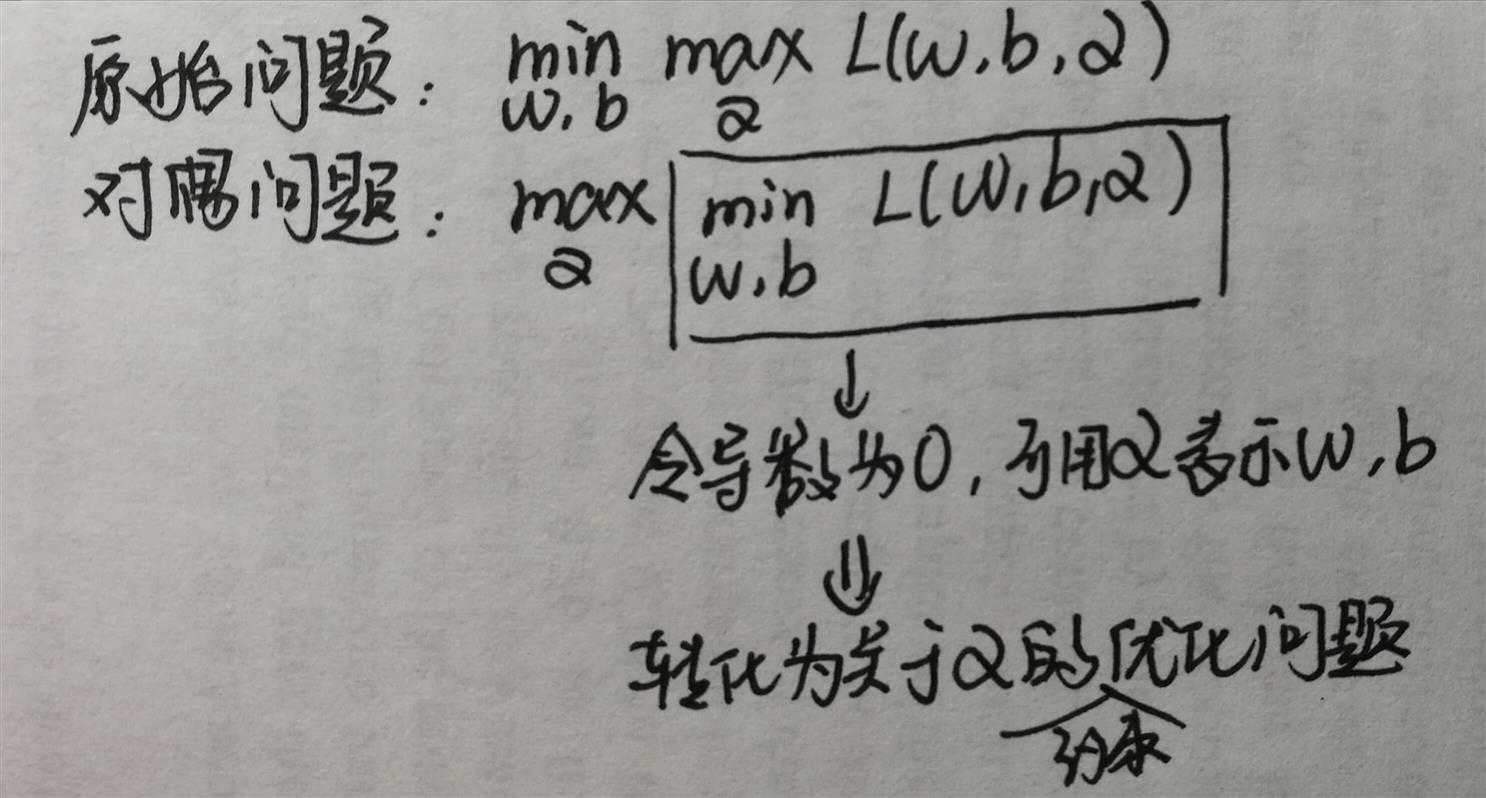 原始问题: min max L(w,b,α)
w,b α
对偶问题: max min L(w,b,α)
α w,b
↓
令导数为0,可用α表示w,b
⇓
转化为关于α的优化问题
约束